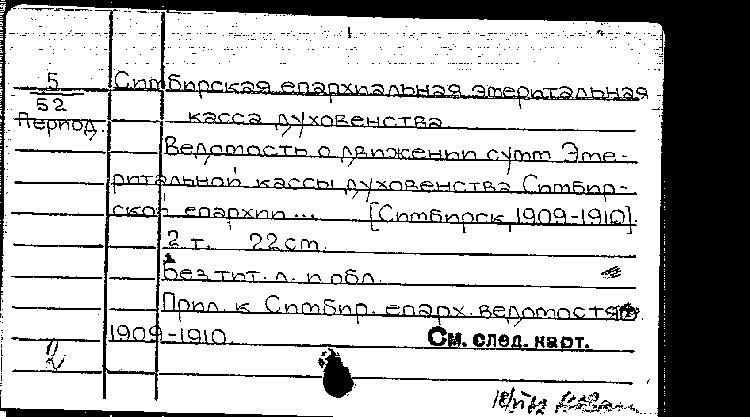 5
52
Период.
Симбирская епархиальная эмеритальная
касса духовенства
Ведомость о движении сумм Эме-
ритальной кассы духовенства Симбир-
ской епархии... [Симбирск, 1909-1910].
2 т. 22 см.
Без тит. л. и обл.
Прил. к Симбир. епарх. ведомостям
1909-1910.
См. след. карт.
2